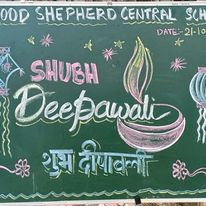 GOOD SHEPHERD CENTRAL SCH
DATE:-21-10
SHUBH
Deepawali
शुभ दीपावली